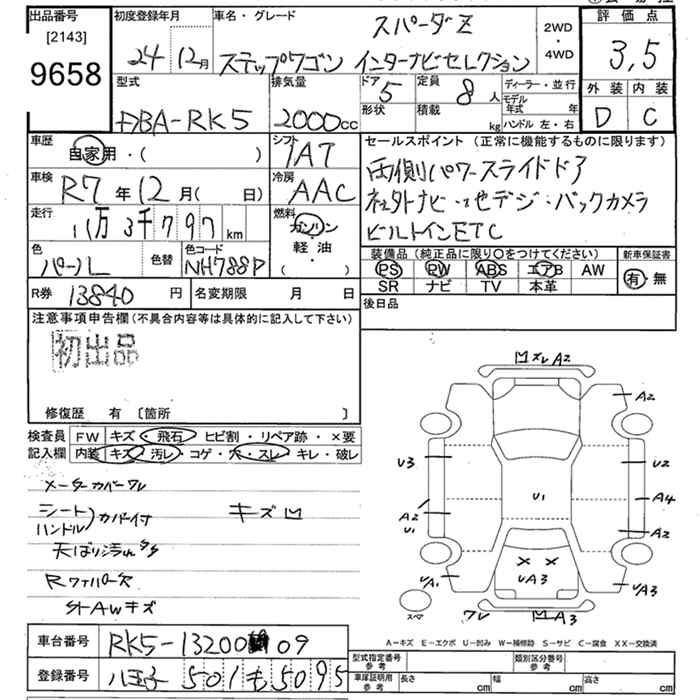 出品番号
[2143]
9658
初度登録年月
24 12月
車名・グレード
スパーダZ
ステップワゴン インターナビセレクション
2WD
・
4WD
評価点
3,5
外装 内装
D C
型式
DBA-RK5
排気量
2000cc
ドア
5
形状
定員
8人
積載
kg
ディーラー・並行
モデル年式 年
ハンドル 左・右
車歴
自家用・( )
シフト
IAT
車検
R7年12月( 日)
冷房
AAC
走行
11万3千797km
燃料
ガソリン
軽油
( )
色
パール
色替
色コード
NH788P
R券 13840円
名変期限 月 日
セールスポイント(正常に機能するものに限ります)
両側パワースライドドア
社外ナビ・地デジ・バックカメラ
ビルトインETC
装備品(純正品に限り〇をつけてください)
PS PW ABS エアB AW
SR ナビ TV 本革
新車保証書
有・無
後日品
注意事項申告欄(不具合内容等は具体的に記入して下さい)
初出品
修復歴 有 〔箇所 〕
検査員記入欄
FW キズ・飛石・ヒビ割・リペア跡・×要
内装 キズ・汚レ・コゲ・穴・スレ・キレ・破レ
メーターカバーワレ
シート
ハンドル)カバー付
キズ凹
天ばり汚れ
Rワイパー欠
外AWキズ
凹ズレA2
A2
U3
U2
U1
A4
A2
U1
A2
UA1
× ×
UA3
UA3
スペア
ワレ
凹A3
A=キズ E=エクボ U=凹み W=補修跡 S=サビ C=腐食 XX=交換済
車台番号 RK5-1320009
登録番号 八王子 501 も 5095
型式指定番号
参考
類別区分番号
参考
車庫証明用
参考
長さ cm
幅 cm
高さ cm